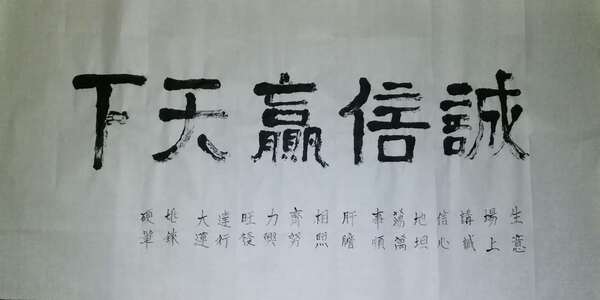 誠信贏天下
生意
場上
講誠
信心
地坦
蕩萬
事順
肝膽
相照
齊努
力興
旺發
達行
大運
姚
硬筆